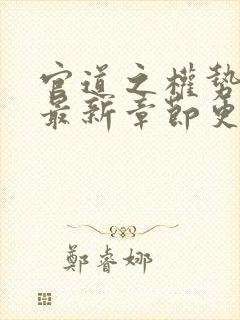 官道之權勢
最新章節更
鄭睿娜